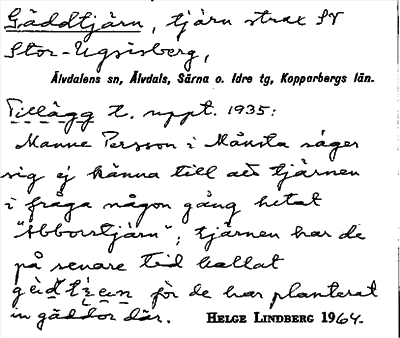 Gäddtjärn, tjärn strax SV
Stor-Ugsisberg,
Älvdalens sn, Älvdals, Särna o. Idre tg, Kopparbergs län.
Tillägg t. uppt. 1935:
Manne Persson i Månsta säger
sig ej känna till att tjärnen
i fråga någon gång hetat
"Abborrtjärn"; tjärnen har de
på senare tid kallat
för de har planterat
in gäddor där. HELGE LINDBERG 1964.